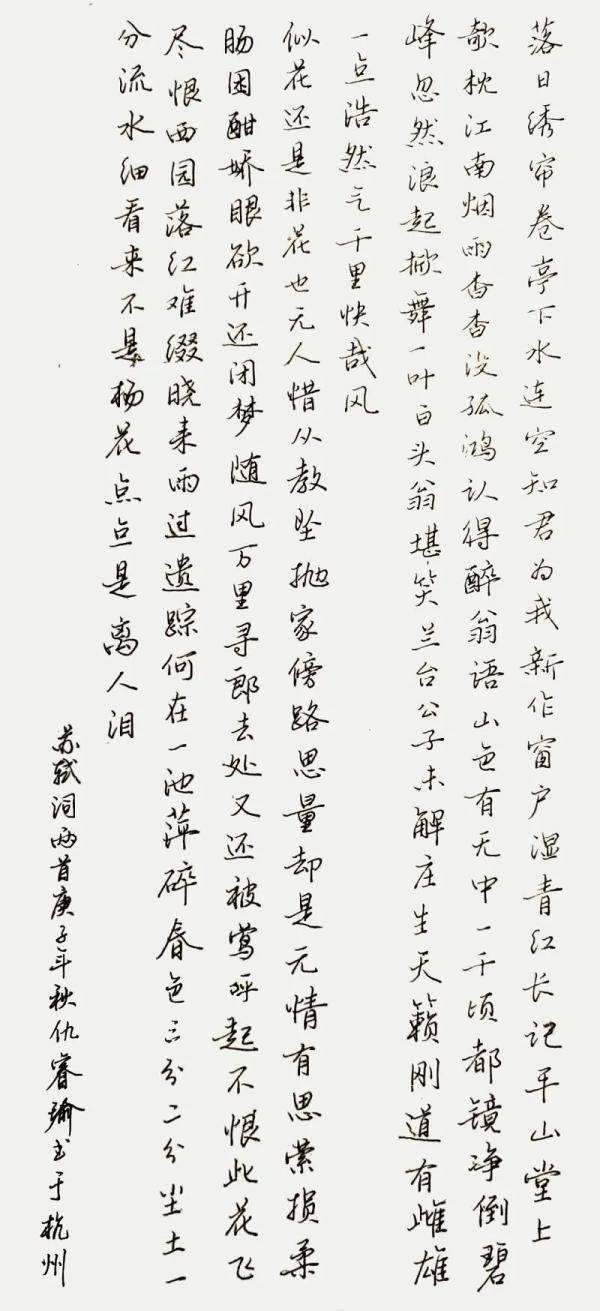 落日绣帘卷亭下水连空知君为我新作窗户湿青红长记平山堂上
欹枕江南烟雨杳杳没孤鸿认得醉翁语山色有无中一千顷都镜净倒碧
峰忽然浪起掀舞一叶白头翁堪笑兰台公子未解庄生天籁刚道有雌雄
一点浩然气千里快哉风
似花还是非花也无人惜从教坠抛家傍路思量却是无情有思萦损柔
肠困酣娇眼欲开还闭梦随风万里寻郎去处又还被莺呼起不恨此花飞
尽恨西园落红难缀晓来雨过遗踪何在一池萍碎春色三分二分尘土一
分流水细看来不是杨花点点是离人泪
苏轼词两首庚子年秋仇睿瑜书于杭州